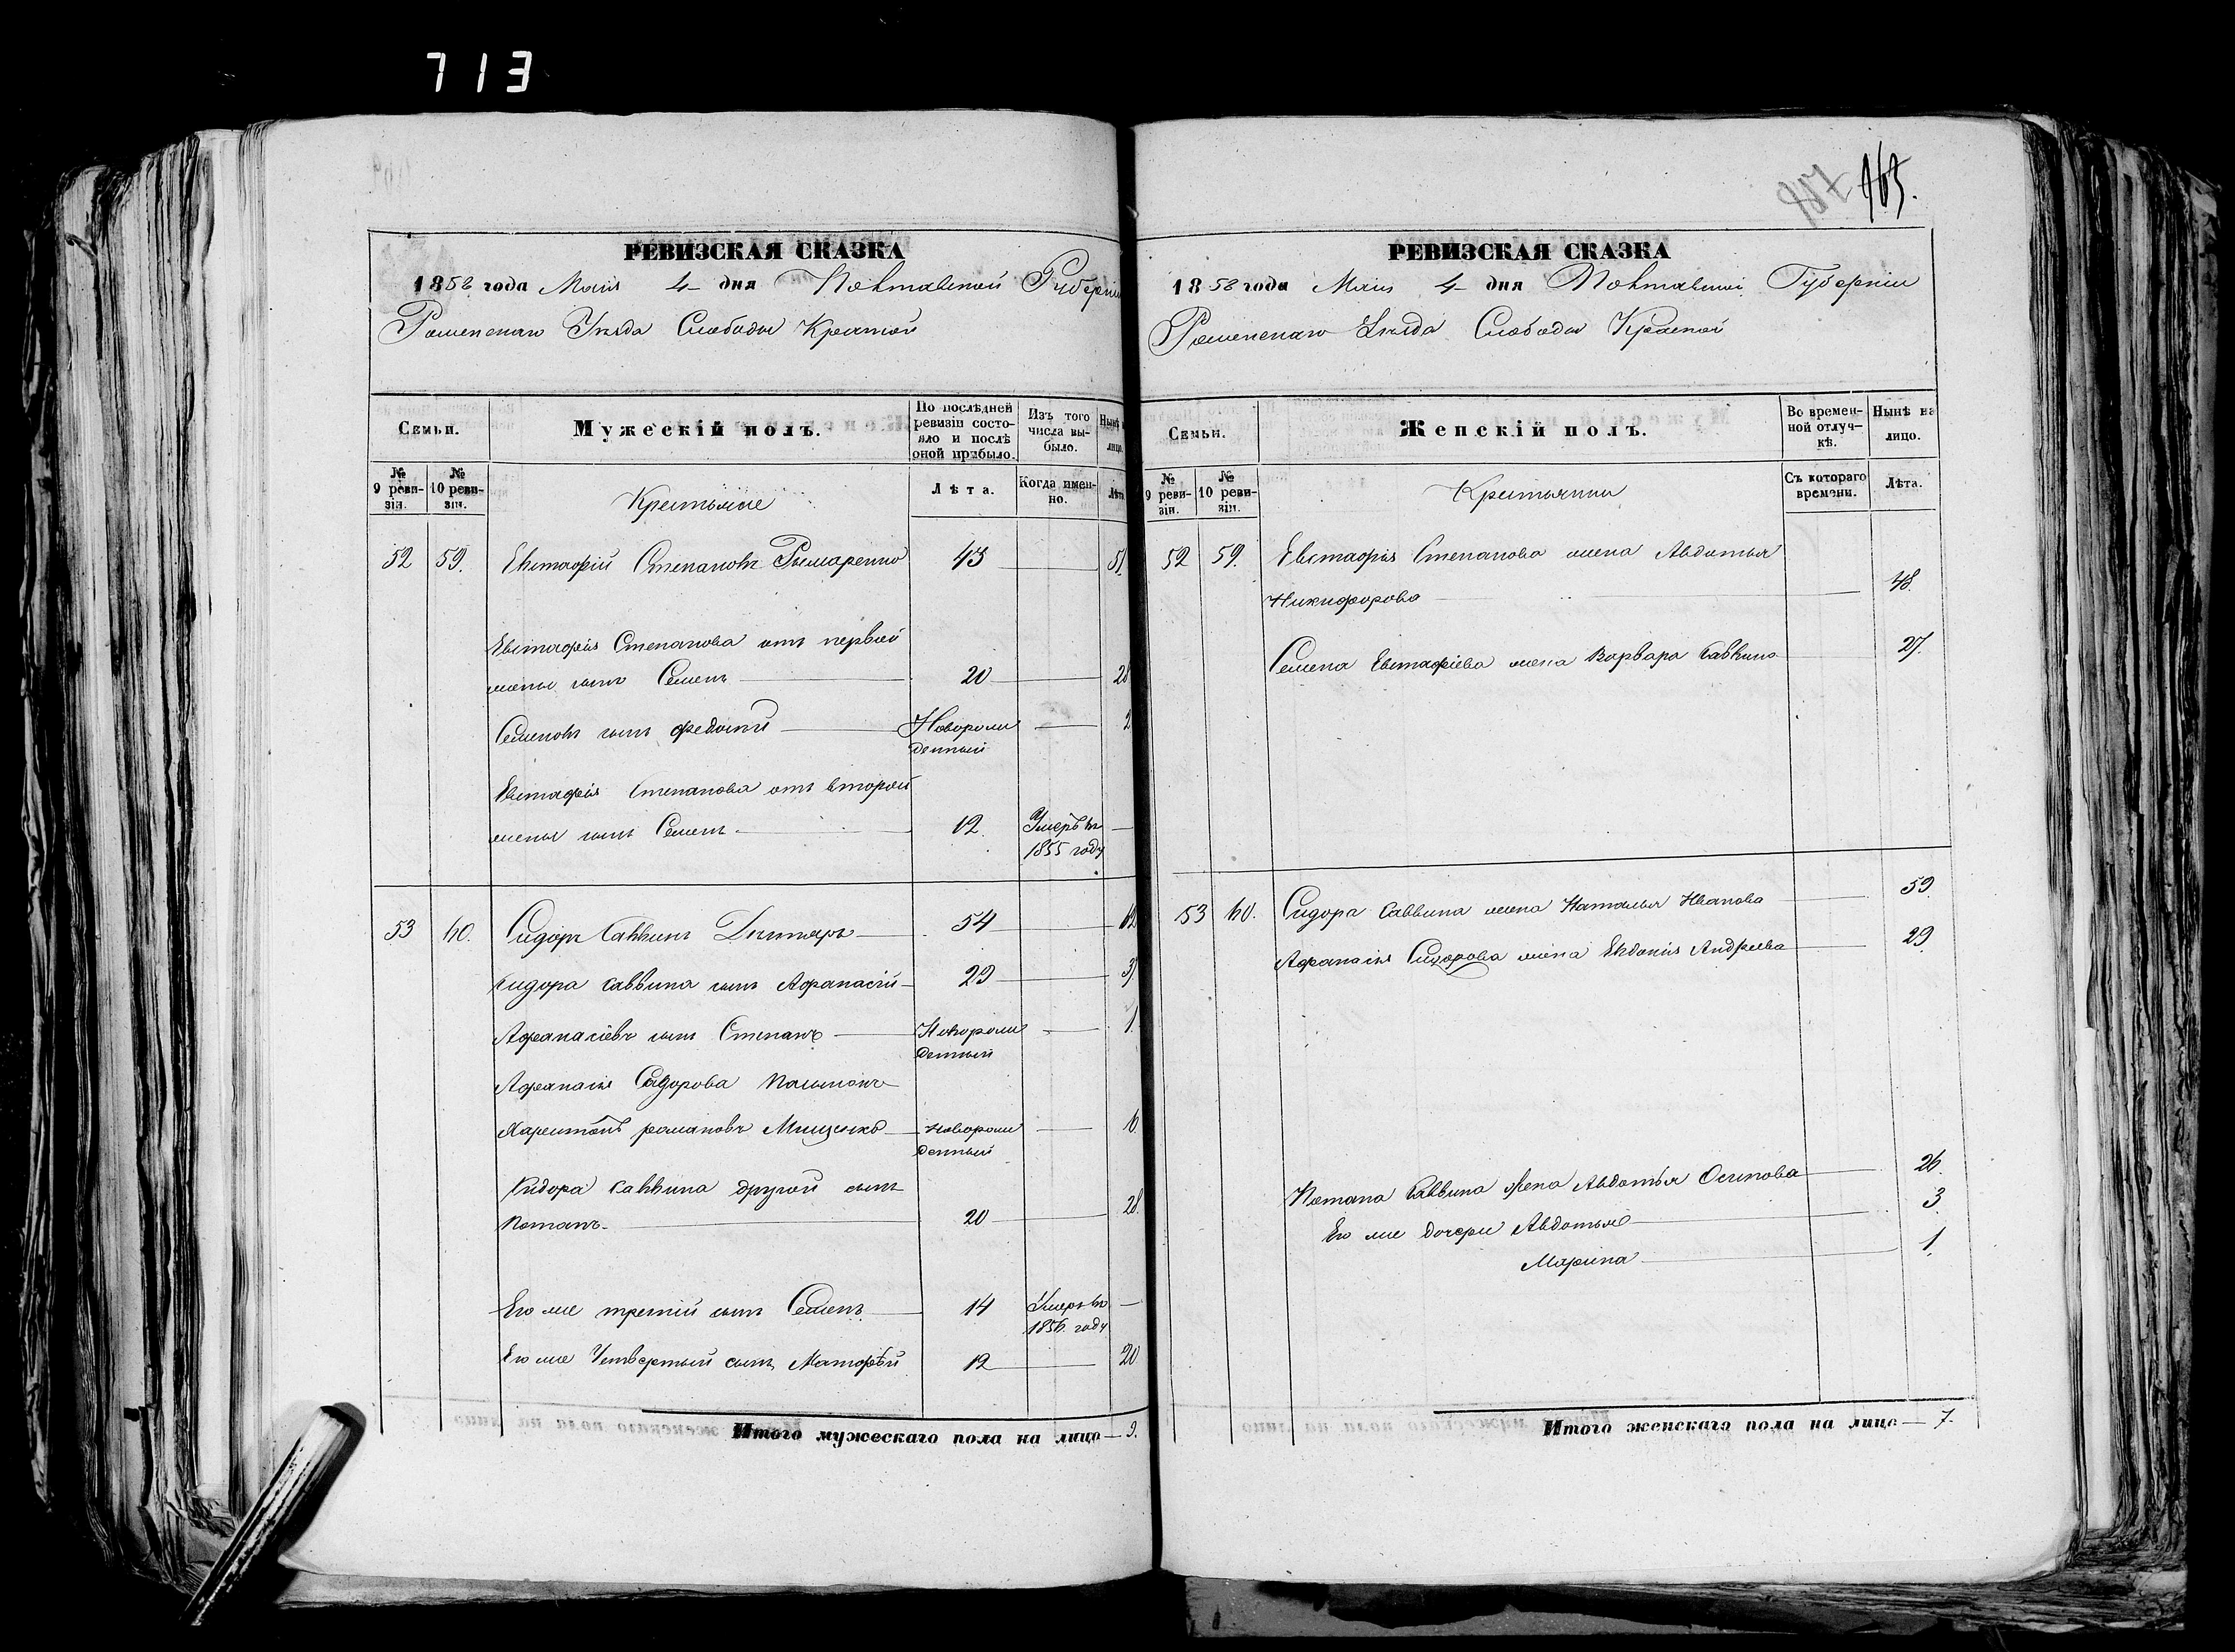 713
РЕВИЗСКАЯ СКАЗКА
1858 года Маія 4 дня Полтавской Губерніи
Роменскаго Уѣзда Слободы Красной
Семьи.
Мужескій полъ.
По послѣдней ревизіи состояло и послѣ оной прибыло.
Изъ того числа выбыло.
Нынѣ
лицо.
№ 9 ревизіи.
№ 10 ревизіи.
Крестьяне
Лѣта.
Когда именно.
Лѣта
52 59. Евстафій Степановъ Рымаренко 43 51.
Евстафія Степанова отъ первой
жены сынъ Семенъ 20 28
Семеновъ сынъ Федосій Новорож 2
денный
Евстафія Степанова отъ второй
жены сынъ Семенъ 12. Умеръ въ
1855 году
53 60. Сидоръ Саввинъ 54 62
Сидора Саввина сынъ Афанасій 29 37
Афанасіевъ сынъ Степанъ Новорож 1.
денный
Афанасія Сидорова
Харитонъ романовъ Мищенко Новорож 6.
денный
Сидора Саввина другой сынъ
Потапъ 20 28.
Его же третій сынъ Семенъ 14 Умеръ въ
1856. году
Его же Четвертый сынъ Матофѣй 12 20
Итого мужескаго пола на лицо 9.
717 165.
РЕВИЗСКАЯ СКАЗКА
1858 года Маія 4 дня Полтавской Губерніи
Роменскаго Уѣзда Слободы Красной
Семьи.
Женскій полъ.
Во временной отлучкѣ.
Нынѣ на лицо.
№ 9 ревизіи.
№ 10 ревизіи.
Крестьянки
Съ котораго времени.
Лѣта.
52 59. Евстафія Степанова жена Авдотья
Никифорова 48.
Семена Евстафіева жена Варвара Савкина 27.
53 60. Сидора Саввина жена Наталья Иванова 59
Афанасія Сидорова жена Евдокія Андреева 29
Потапа Саввина жена Авдотья Осипова 26.
Его же дочери Авдотья 3.
Марина 1.
Итого женскаго пола на лицо 7.